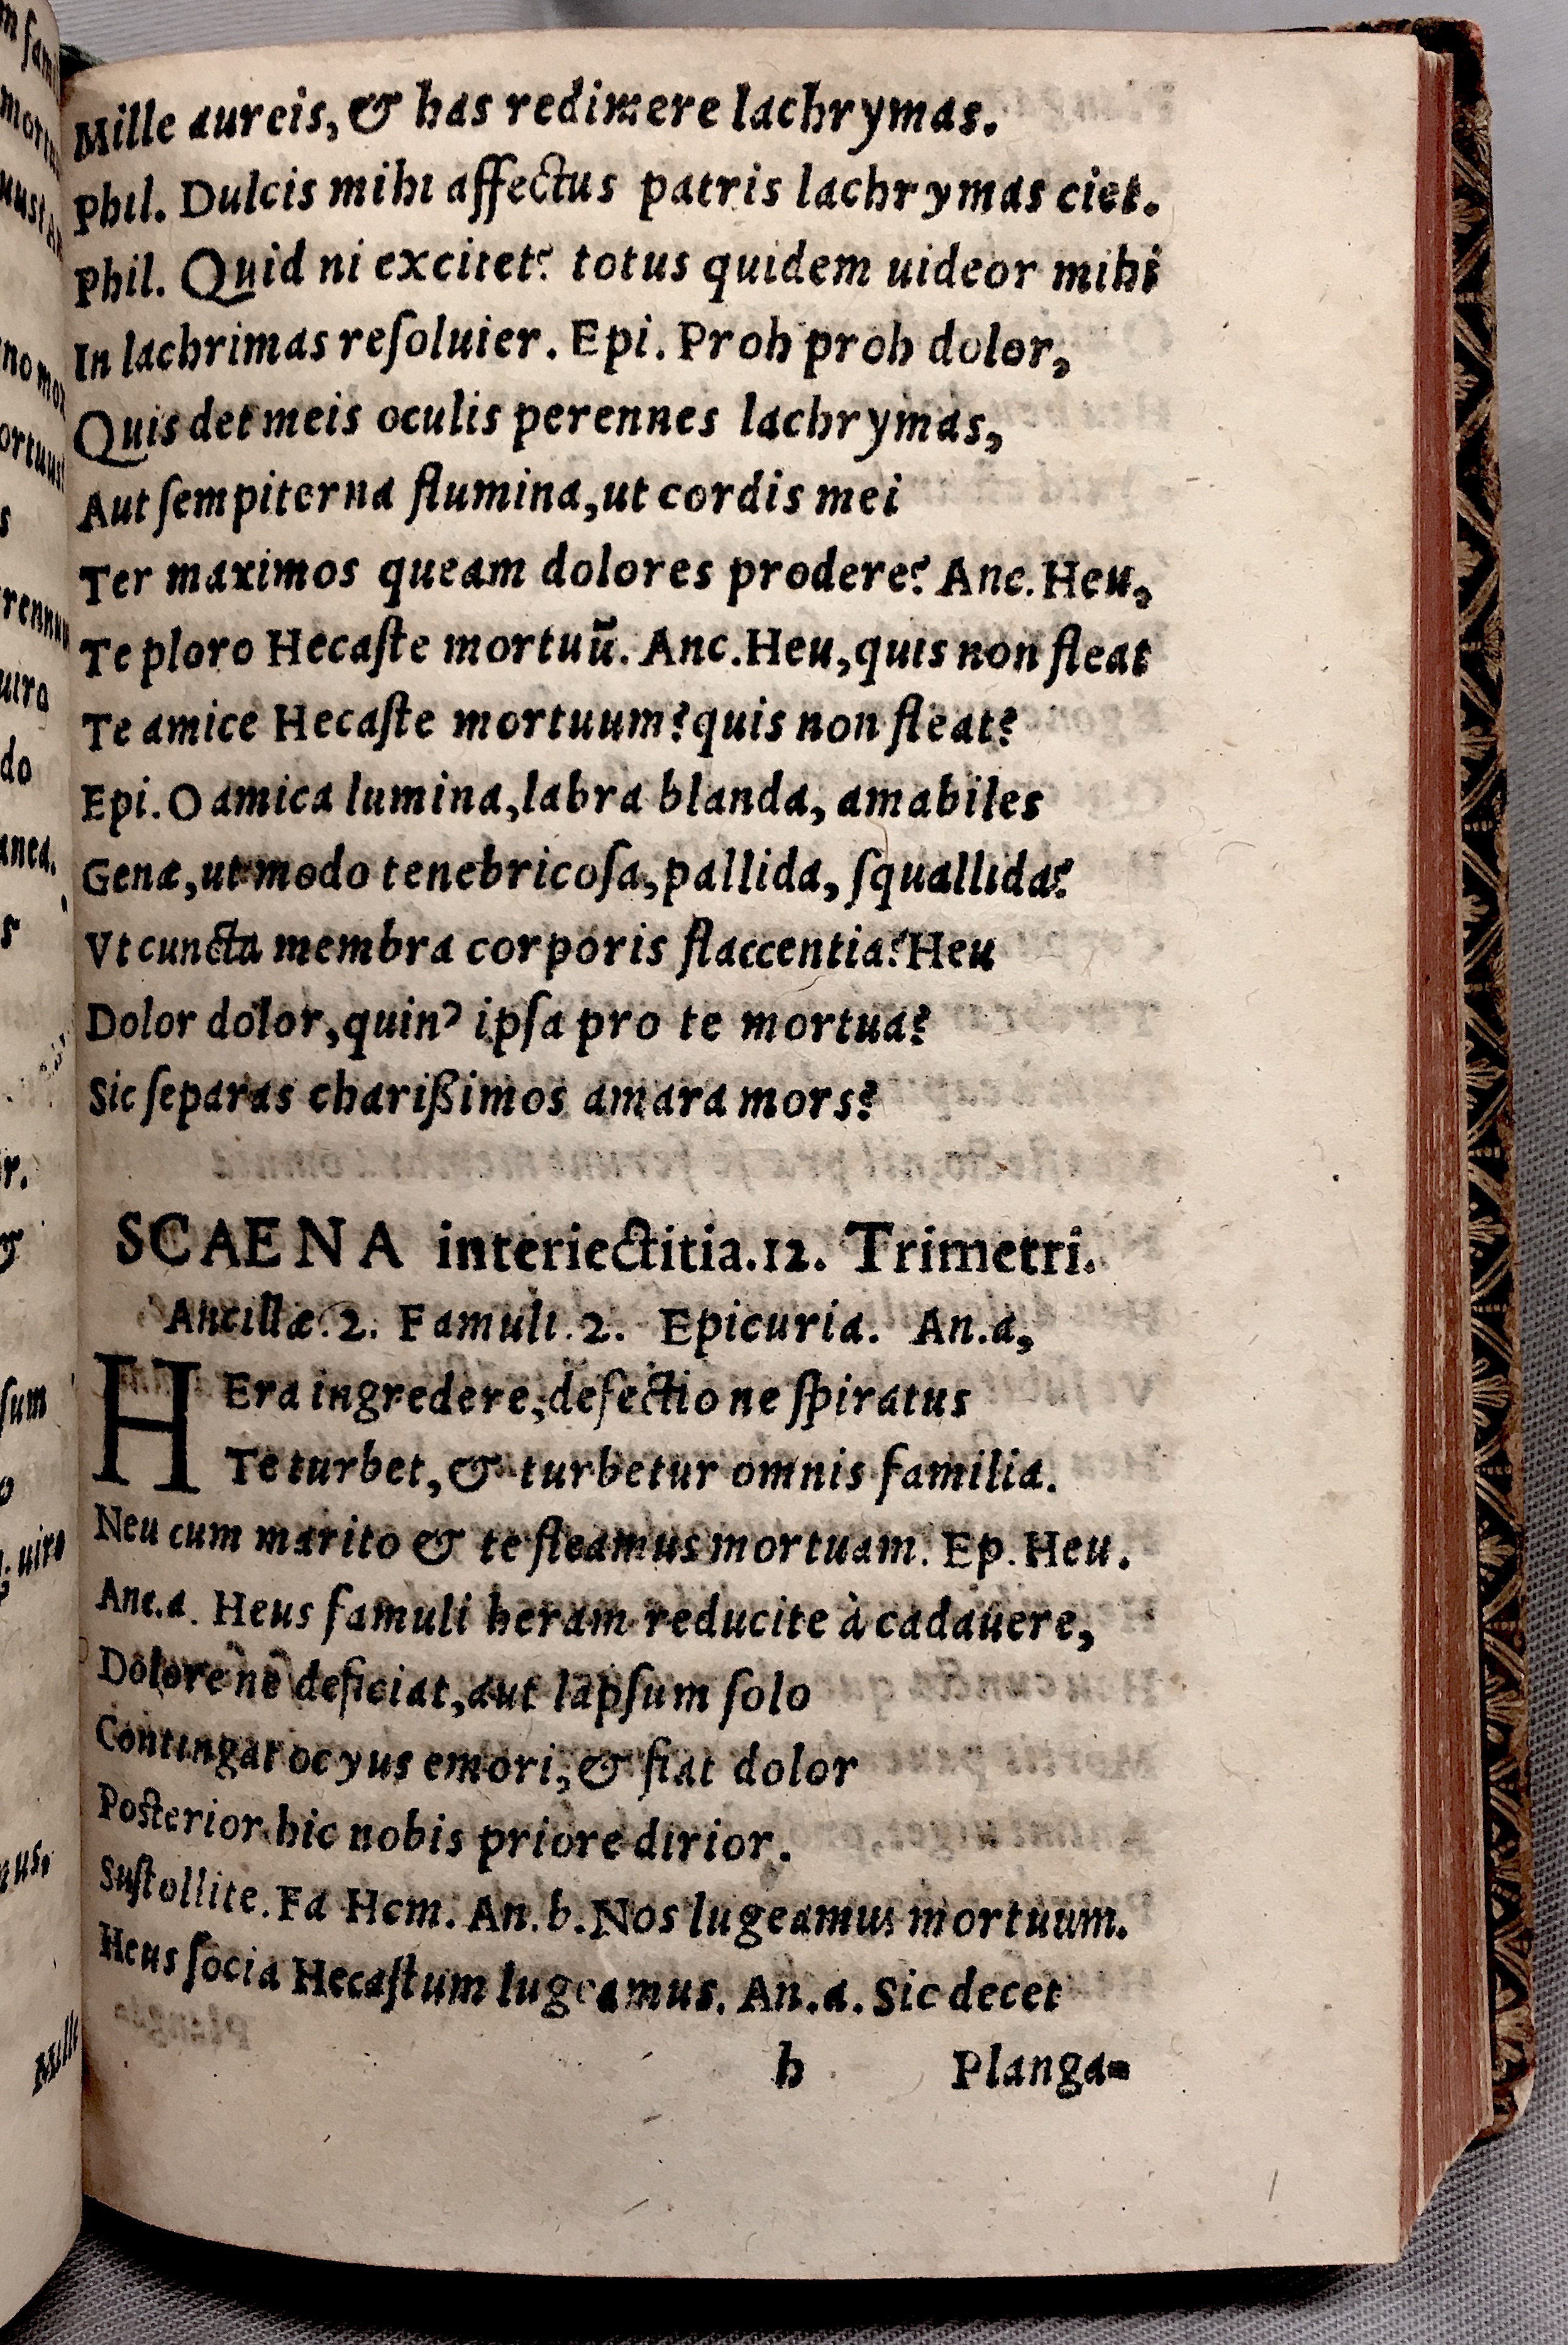 Mille aureis, & has redimere lachrymas.
Phil. Dulcis mihi affectus patris lachrymas ciet.
Phil. Quid ni excitet? totus quidem uideor mihi
In lachrimas reſoluier. Epi. Proh proh dolor,
Quis det meis oculis perennes lachrymas,
Aut ſempiterna flumina, ut cordis mei
Ter maximos queam dolores prodere? Anc. Heu,
Te ploro Hecaſte mortuū. Anc. Heu, quis non fleat
Te amice Hecaſte mortuum? quis non fleat?
Epi. O amica lumina, labra blanda, amabiles
Genæ, ut modo tenebricoſa, pallida, ſquallida?
Vt cuncta membra corporis flaccentia? Heu
Dolor dolor, quin' ipſa pro te mortua?
Sic ſeparas charißimos amara mors?
SCAENA interiectitia. 12. Trimetri.
Ancillæ. 2. Famuli. 2. Epicuria. An. a,
HEra ingredere, defectio ne ſpiratus
Te turbet, & turbetur omnis familia.
Neu cum marito & te fleamus mortuam. Ep. Heu.
Anc. a. Heus famuli heram reducite à cadauere,
Dolore ne deficiat, aut lapſum ſolo
Contingat ocyus emori, & fiat dolor
Poſterior hic nobis priore dirior.
Suſtollite. Fa Hem. An. b. Nos lugeamus mortuum.
Heus ſocia Hecaſtum lugeamus. An. a. Sic decet
h Planga=